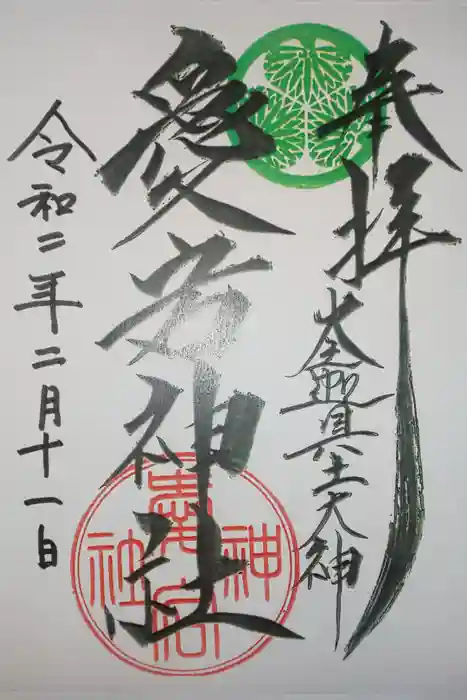 奉拝
迦具土大神
愛宕神社
令和二年二月十一日
愛宕神社